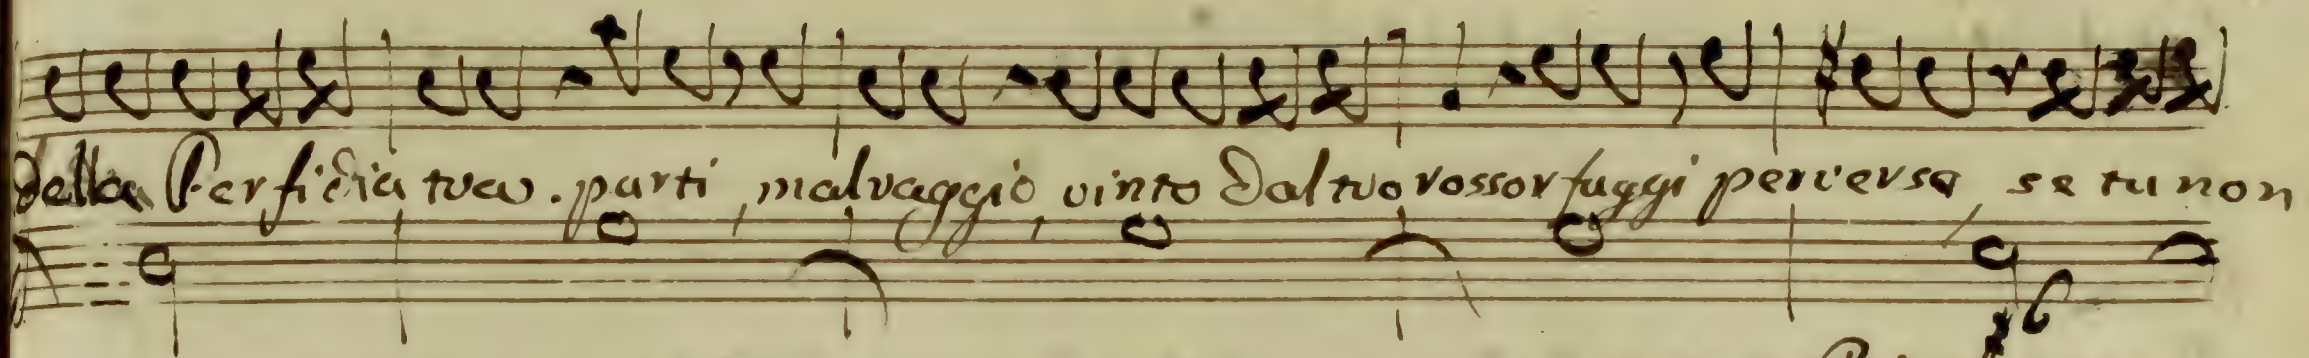 della Perfidia tua. parti, malvaggio, vinto dal tuo rossor fuggi perverso se tu non
6